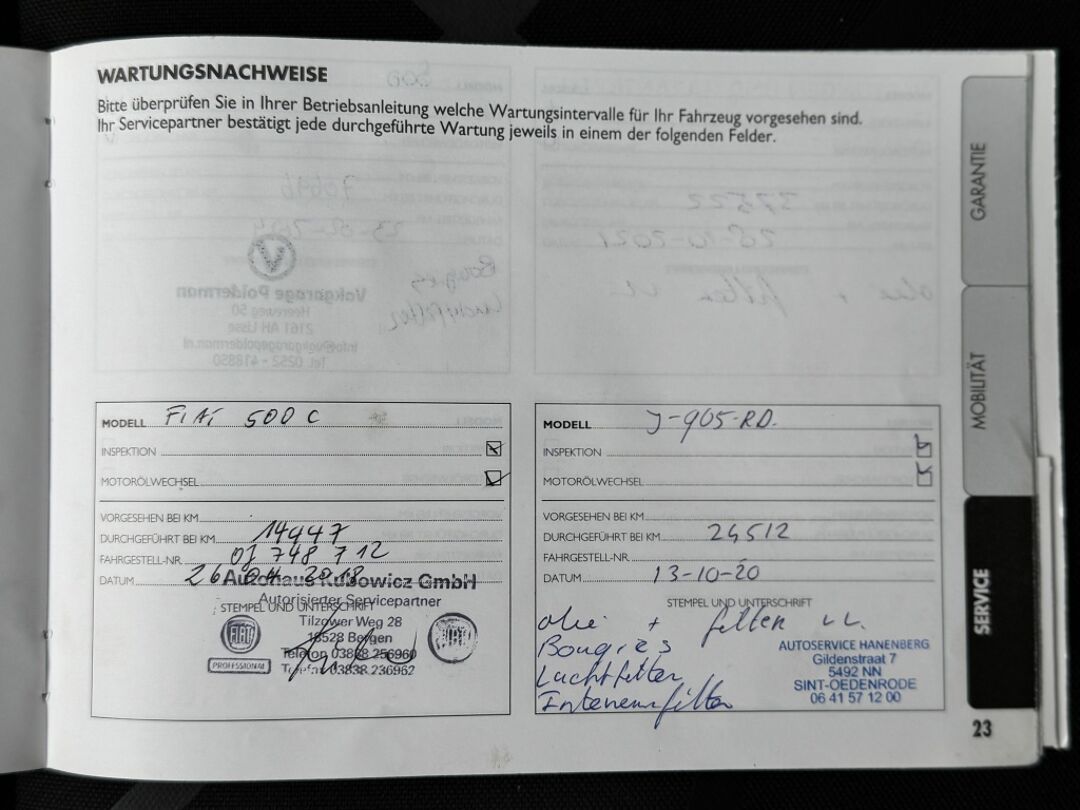 WARTUNGSNACHWEISE
Bitte überprüfen Sie in Ihrer Betriebsanleitung welche Wartungsintervalle für Ihr Fahrzeug vorgesehen sind.
Ihr Servicepartner bestätigt jede durchgeführte Wartung jeweils in einem der folgenden Felder.
GARANTIE
MOBILITÄT
SERVICE
MODELL FIAT 500 C
INSPEKTION
MOTORÖLWECHSEL
VORGESEHEN BEI KM
DURCHGEFÜHRT BEI KM 14447
FAHRGESTELL-NR. 0J 748 712
DATUM 26 04 2018
Autohaus Kubowicz GmbH
Autorisierter Servicepartner
STEMPEL UND UNTERSCHRIFT
Tilzower Weg 28
18528 Bergen
Telefon 03838 256960
Telefax 03838 236962
FIAT
PROFESSIONAL
MODELL J-905-RD.
INSPEKTION
MOTORÖLWECHSEL
VORGESEHEN BEI KM
DURCHGEFÜHRT BEI KM 24512
FAHRGESTELL-NR.
DATUM 13-10-20
STEMPEL UND UNTERSCHRIFT
olie + filter
Bougies
Luchtfilter
Interieurfilter
AUTOSERVICE HANENBERG
Gildenstraat 7
5492 NN
SINT-OEDENRODE
06 41 57 12 00
23